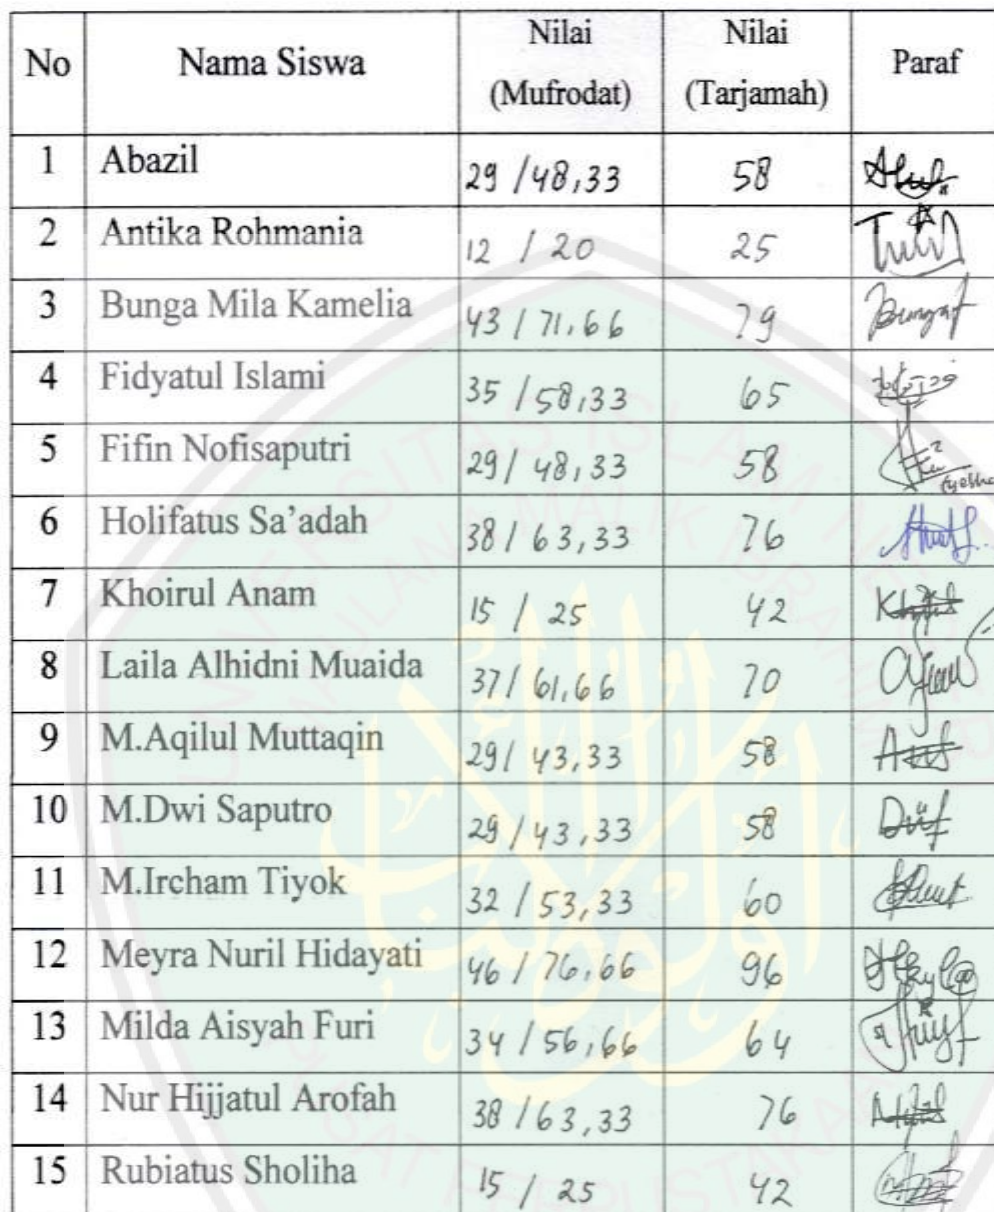 No Nama Siswa Nilai (Mufrodat) Nilai (Tarjamah) Paraf
1 Abazil 29 / 48,33 58
2 Antika Rohmania 12 / 20 25
3 Bunga Mila Kamelia 43 / 71,66 79
4 Fidyatul Islami 35 / 58,33 65
5 Fifin Nofisaputri 29 / 48,33 58
6 Holifatus Sa'adah 38 / 63,33 76
7 Khoirul Anam 15 / 25 42
8 Laila Alhidni Muaida 37 / 61,66 70
9 M.Aqilul Muttaqin 29 / 43,33 58
10 M.Dwi Saputro 29 / 43,33 58
11 M.Ircham Tiyok 32 / 53,33 60
12 Meyra Nuril Hidayati 46 / 76,66 96
13 Milda Aisyah Furi 34 / 56,66 64
14 Nur Hijjatul Arofah 38 / 63,33 76
15 Rubiatus Sholiha 15 / 25 42